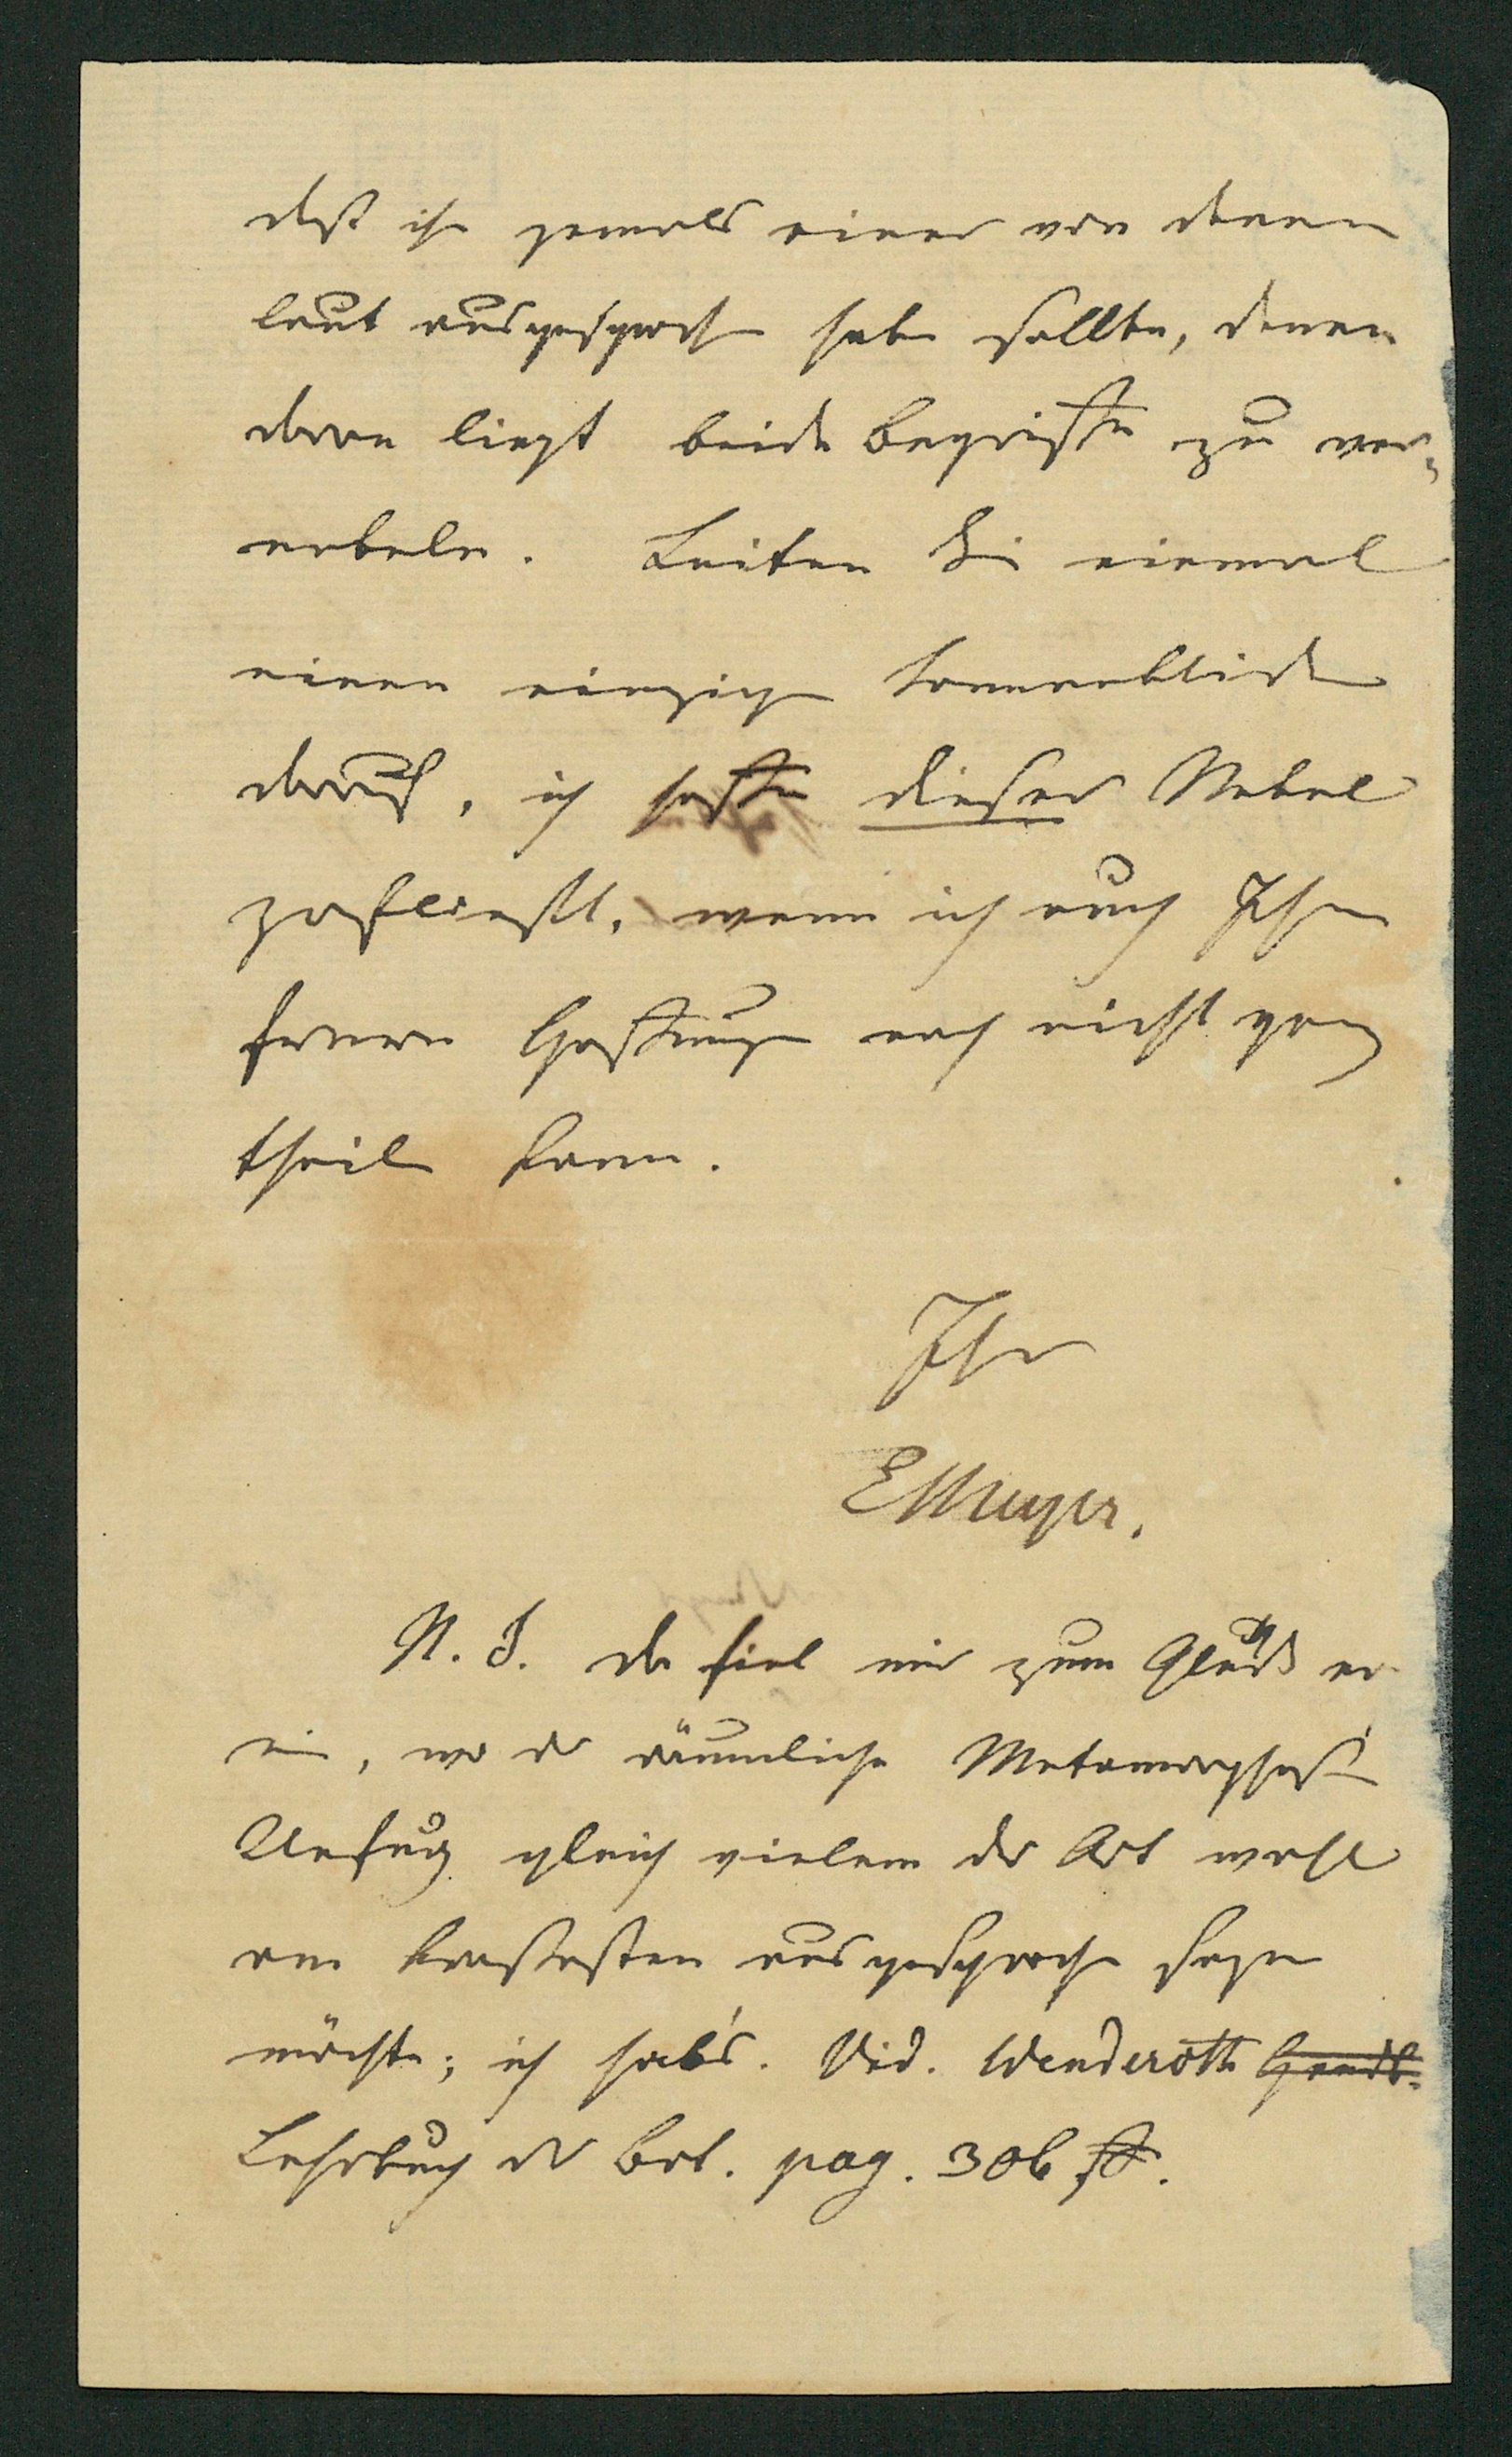 daß ihn jemals einer von denen
laut ausgesprochen haben sollte, denen
daran liegt beide Begriffe zu ver-
nebeln. Leiten Sie einmal
einen einzigen Sonnenblick
darauf, ich hoffe dieser Nebel
zerfließt, wenn ich auch Ihre
ferneren Hoffnungen noch nicht ganz
theilen kann.
Ihr
EMeyer.
N. S. Da fiel mir zum Glück
ein, wo der räumliche Metamorphosen
Unfug gleich vielem der Art wohl
am krassesten ausgesprochen seyn
möchte; ich hab's. Vid. Wenderoth Handb.
Lehrbuch der Bot. pag. 306 ff.